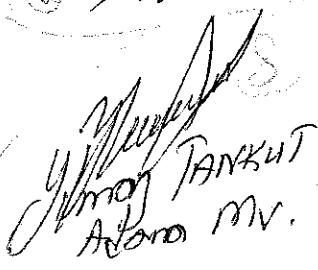 Yılmaz TANKUT
Adana Mv.